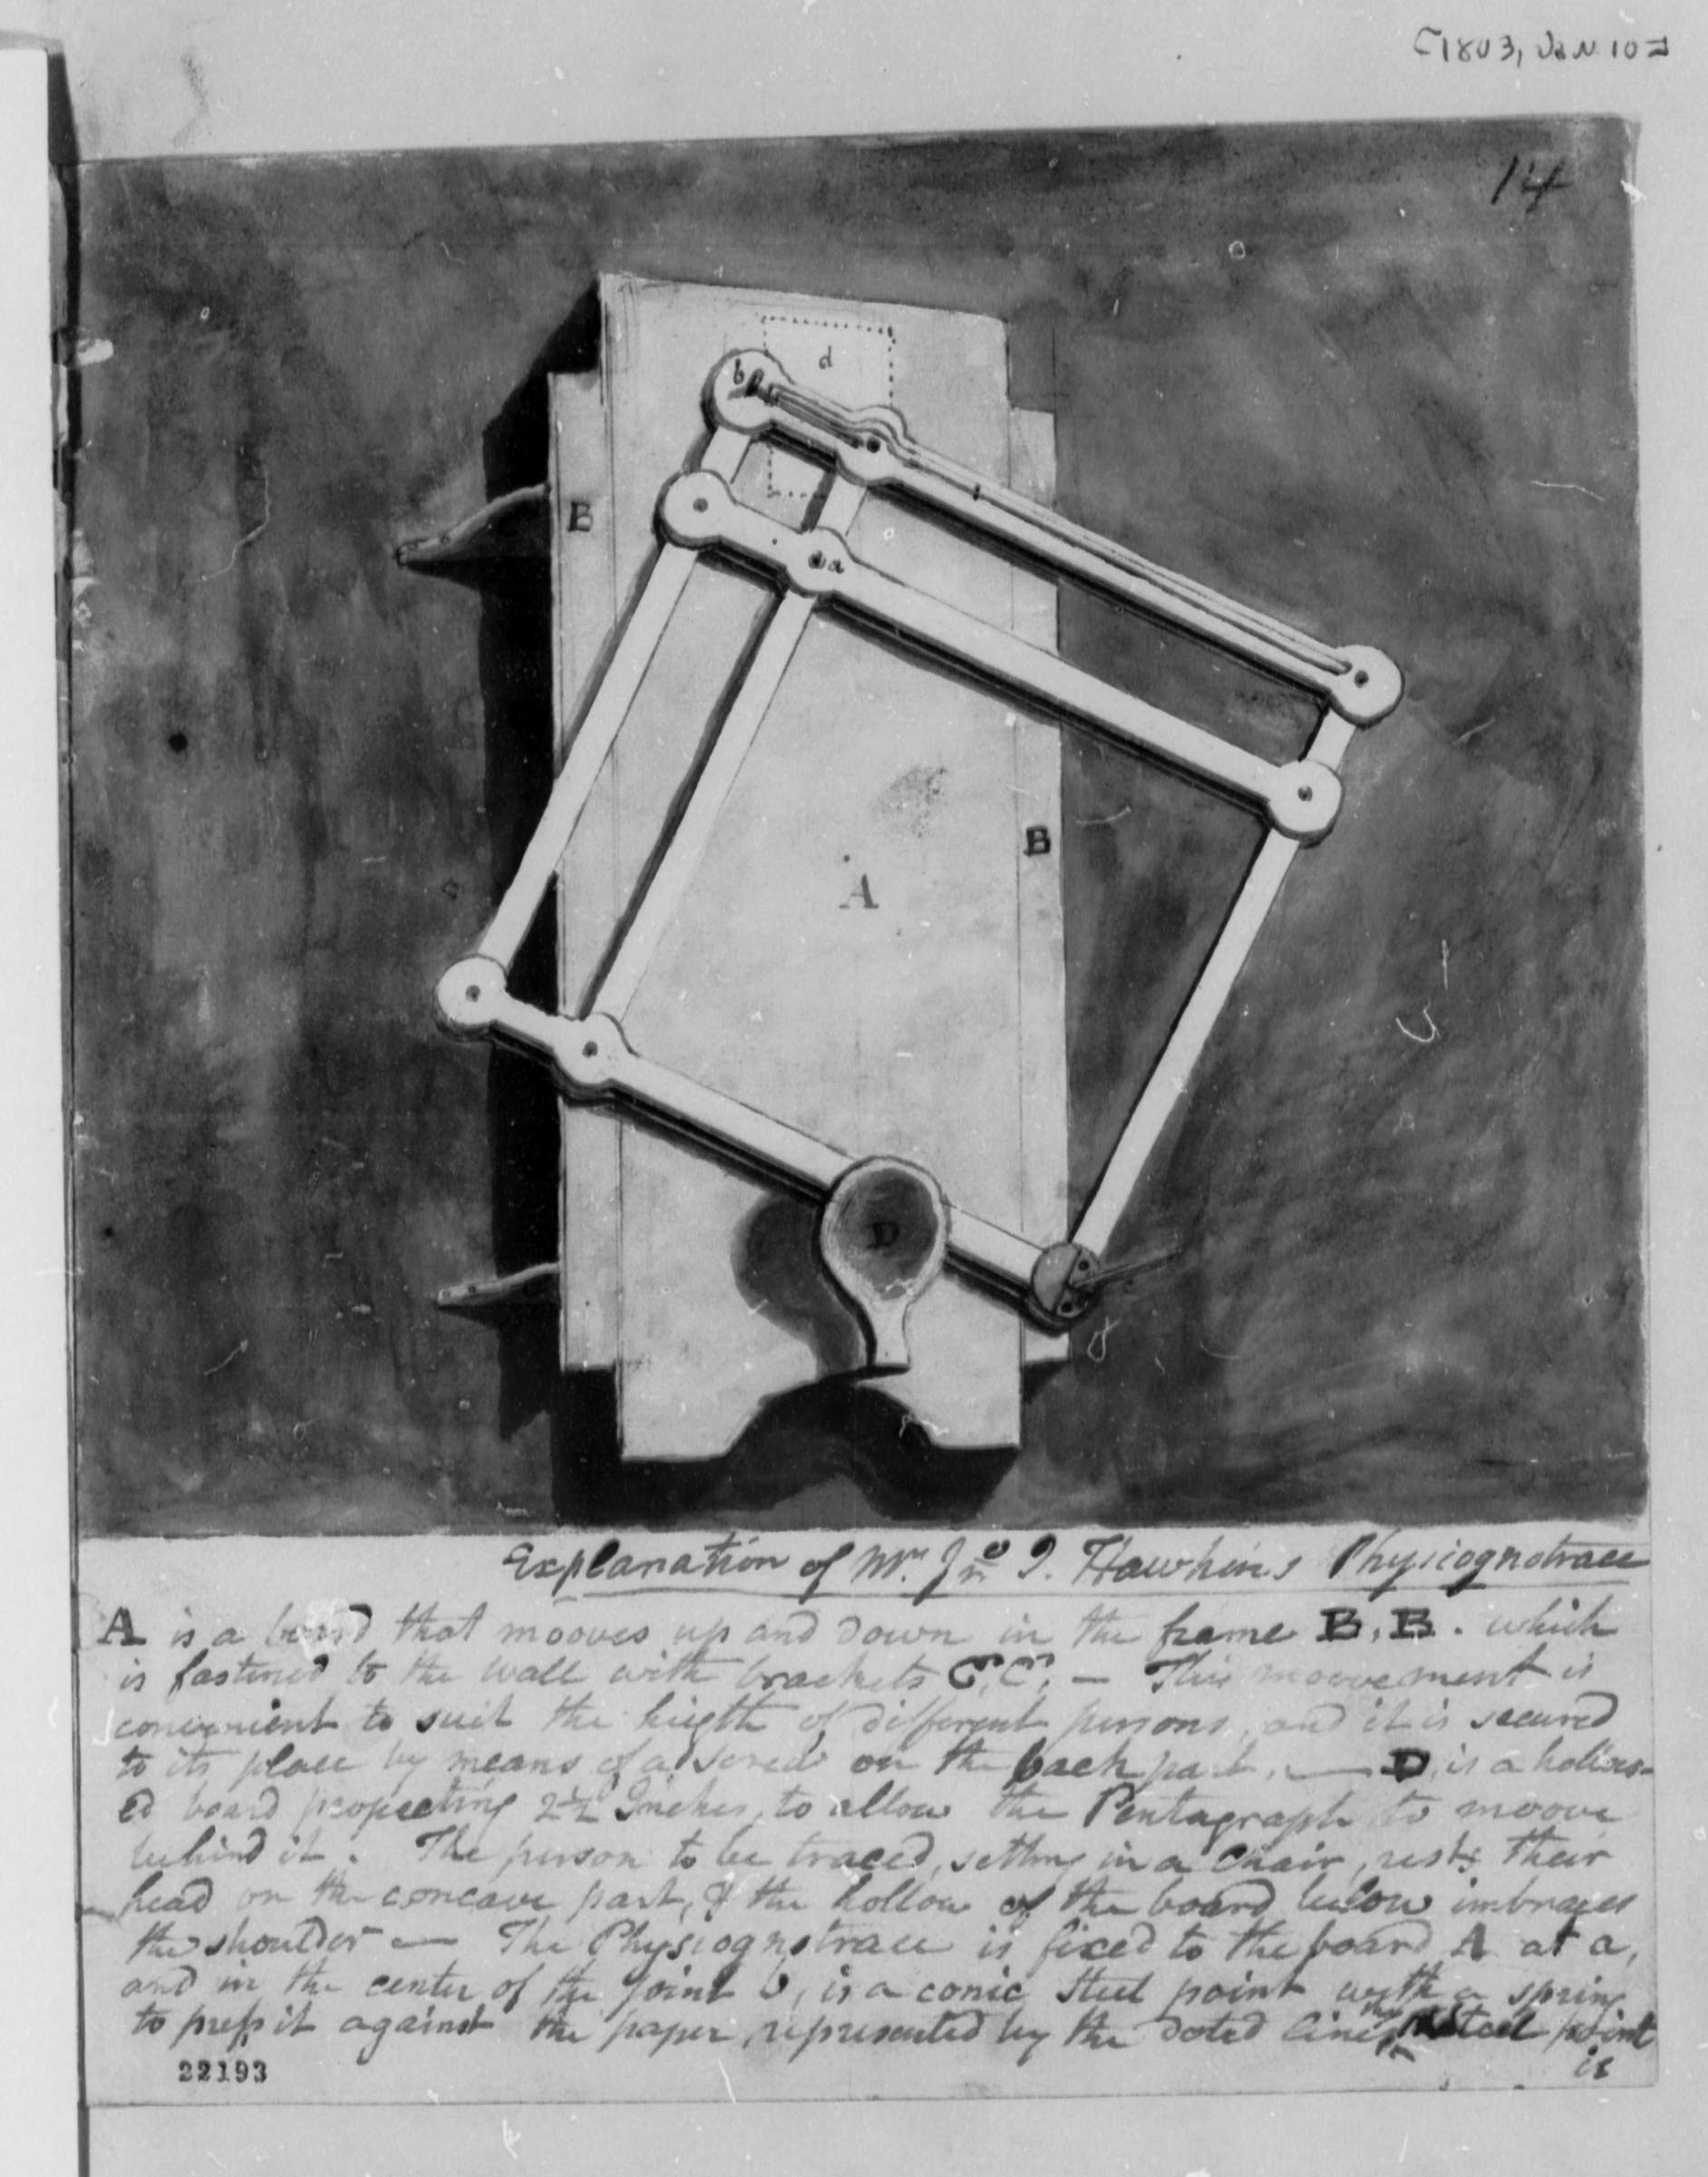 [1803, Jan 10]
14
b
d
B
a
B
A
D
Explanation of Mr. Jno I. Hawkins Physiognotrace
A is a board that mooves up and down in the frame B, B. which
is fastened to the wall with brackets C, C, — This moovement is
convenient to suit the hegth of different persons, and it is secured
to its place by means of a screw on the back part, — D, is a hollow-
ed board projecting 2½ Inches, to allow the Pentagraph to moove
behind it. The person to be traced, setting in a Chair, rests their
head on the concave part, & the hollow of the board below imbraces
the shoulder — The Physiognotrace is fixed to the board A at a,
and in the center of the joint b, is a conic steel point with a spring
to press it against the paper, represented by the doted lines, steel point
is
22193